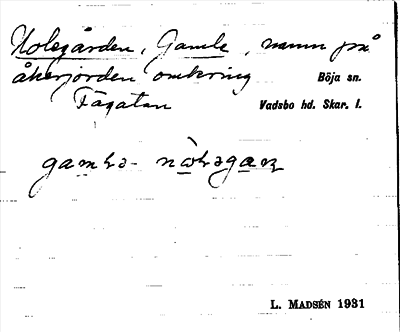 Nolsgården, Gamle, namn på
åkerjorden omkring Böja sn.
Fägatan Vadsbo hd. Skar. l.
L. MADSÉN 1931